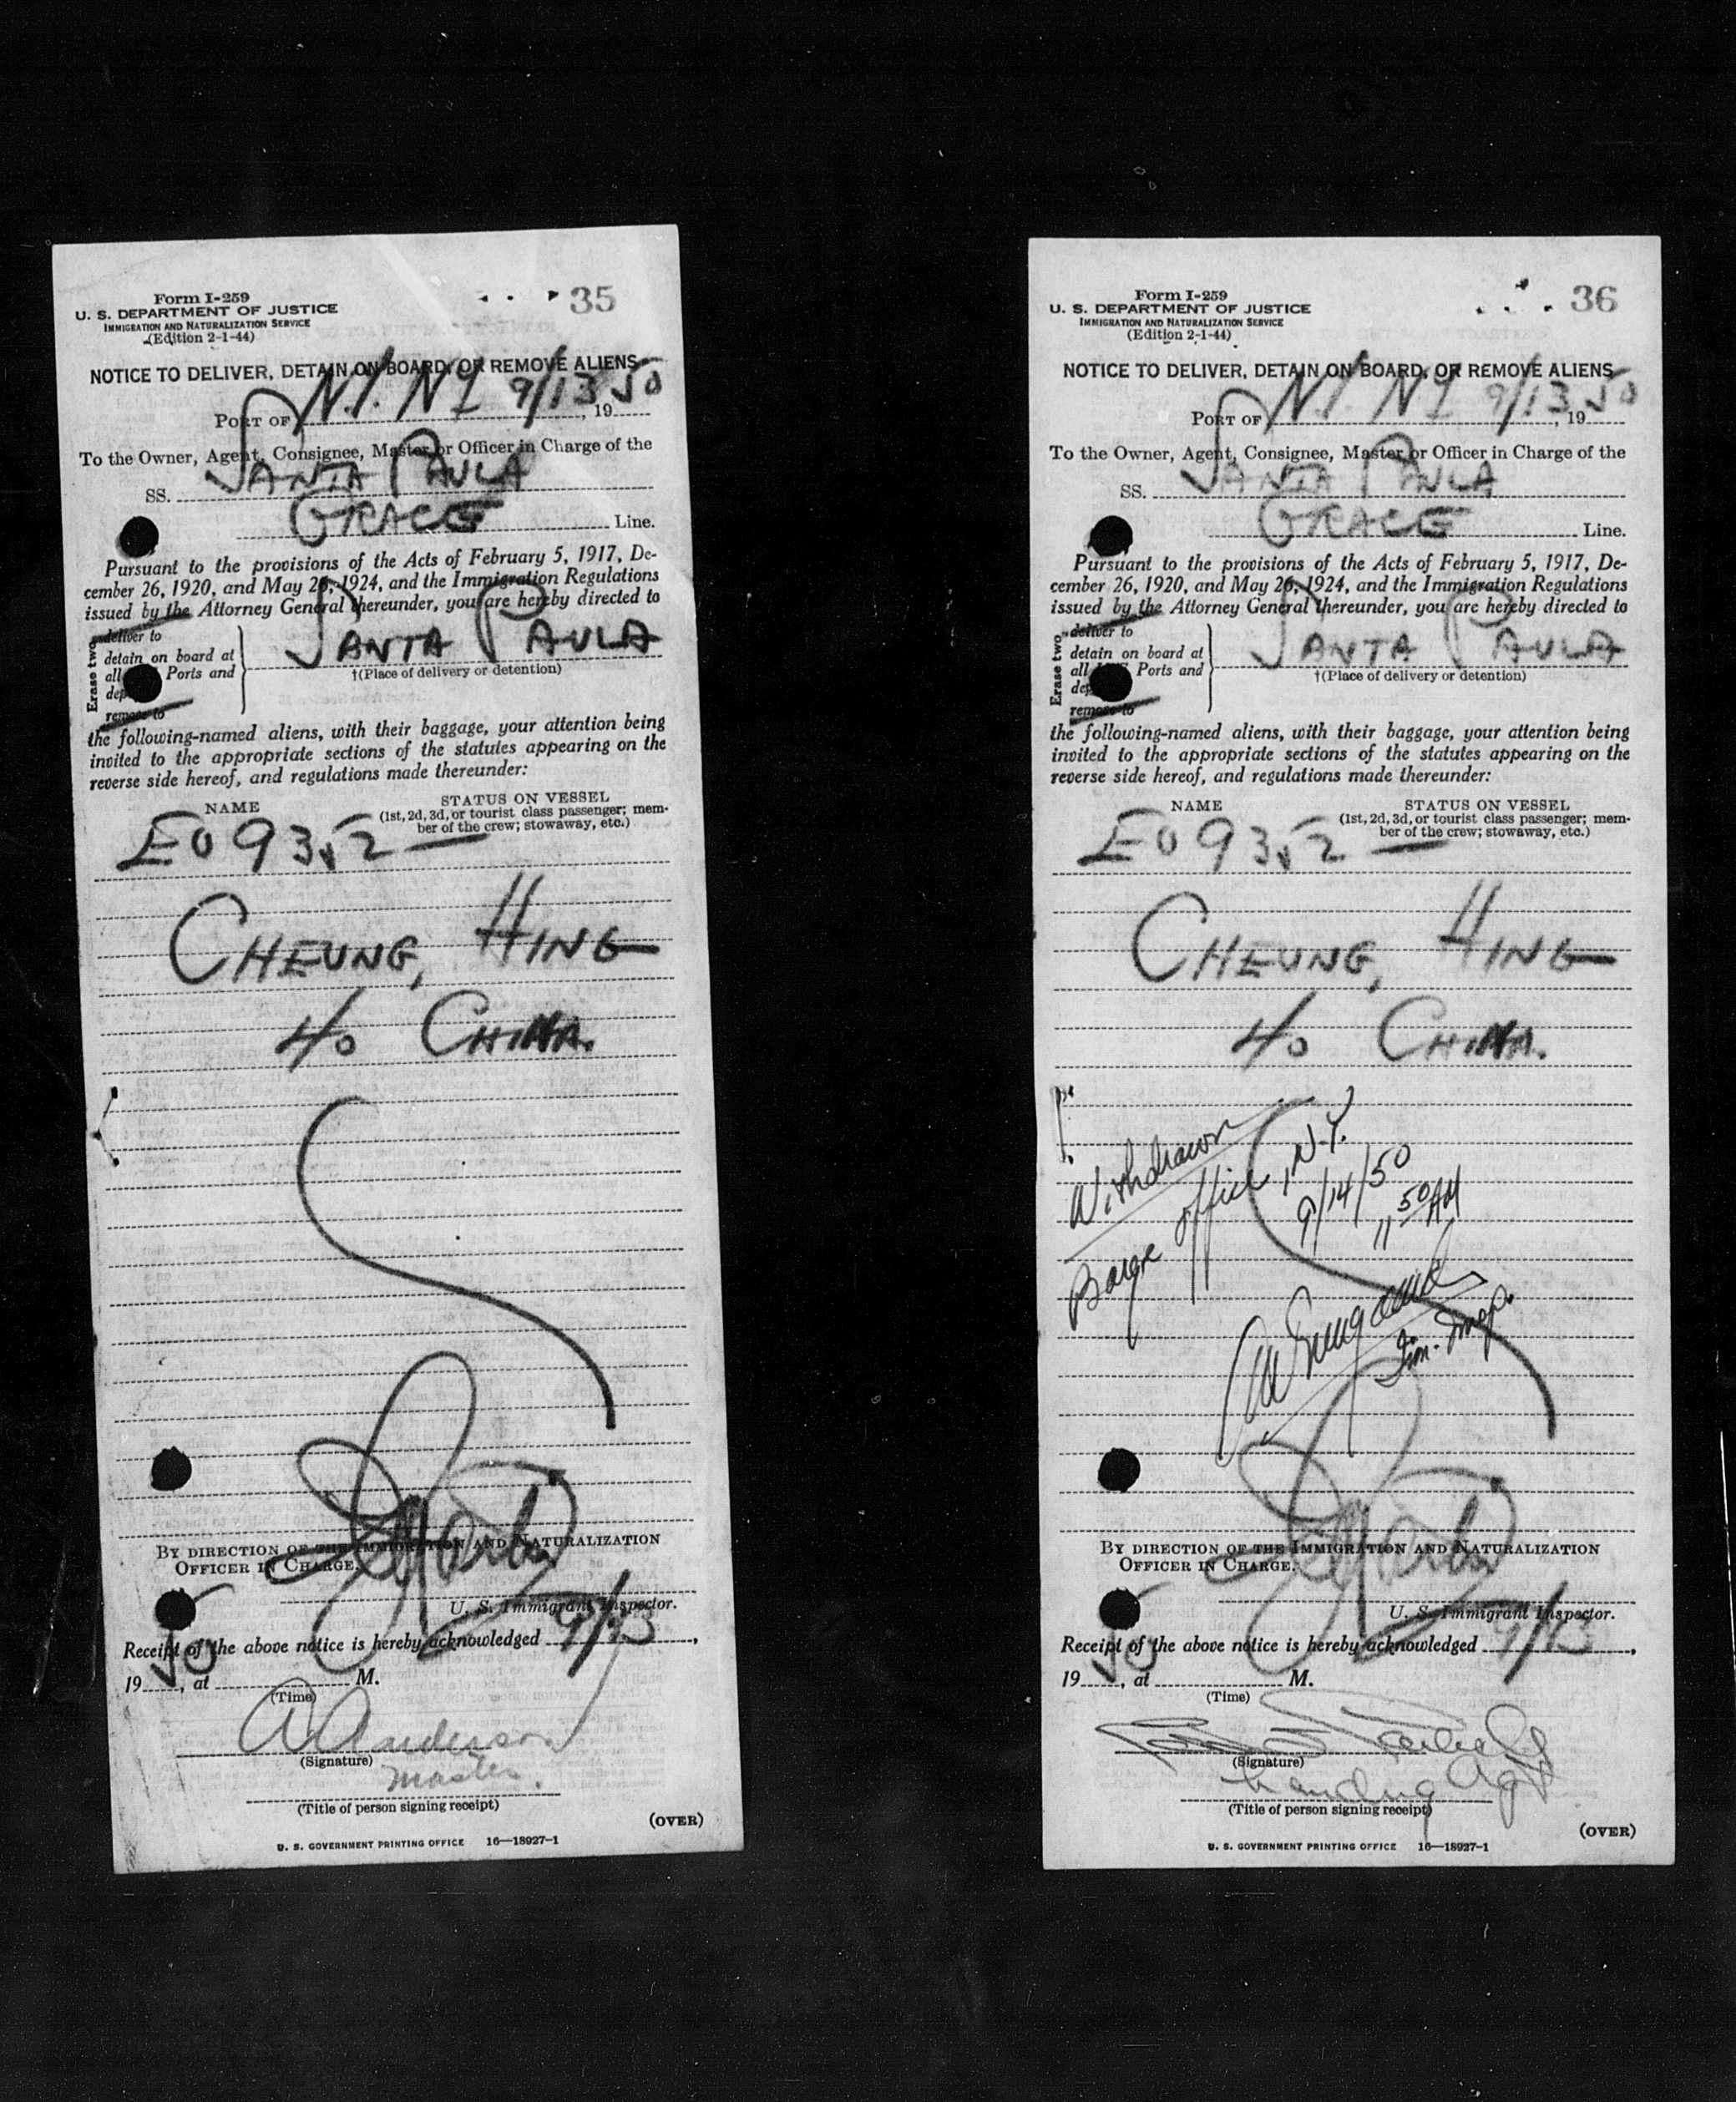 Form I-259
35
U. S. DEPARTMENT OF JUSTICE
IMMIGRATION AND NATURALIZATION SERVICE
(Edition 2-1-44)
NOTICE TO DELIVER, DETAIN ON BOARD, OR REMOVE ALIENS
PORT OF N.Y. NY 9/13, 1950
To the Owner, Agent, Consignee, Master or Officer in Charge of the
SS. SANTA PAULA
GRACE Line.
Pursuant to the provisions of the Acts of February 5, 1917, De-
cember 26, 1920, and May 26, 1924, and the Immigration Regulations
issued by the Attorney General thereunder, you are hereby directed to
Erase two
deliver to
detain on board at
all Ports and
SANTA PAULA
†(Place of delivery or detention)
remove to
the following-named aliens, with their baggage, your attention being
invited to the appropriate sections of the statutes appearing on the
reverse side hereof, and regulations made thereunder:
NAME
STATUS ON VESSEL
(1st, 2d, 3d, or tourist class passenger; mem-
ber of the crew; stowaway, etc.)
E09352 —
CHEUNG, HING
40 CHINA.
BY DIRECTION OF THE IMMIGRATION AND NATURALIZATION
OFFICER IN CHARGE.
U. S. Immigrant Inspector.
Receipt of the above notice is hereby acknowledged 9/13,
1950, at M.
(Time)
A Anderson
(Signature)
Master.
(Title of person signing receipt)
(OVER)
U. S. GOVERNMENT PRINTING OFFICE 16—18927-1
Form I-259
36
U. S. DEPARTMENT OF JUSTICE
IMMIGRATION AND NATURALIZATION SERVICE
(Edition 2-1-44)
NOTICE TO DELIVER, DETAIN ON BOARD, OR REMOVE ALIENS
PORT OF N.Y. NY 9/13, 1950
To the Owner, Agent, Consignee, Master or Officer in Charge of the
SS. SANTA PAULA
GRACE Line.
Pursuant to the provisions of the Acts of February 5, 1917, De-
cember 26, 1920, and May 26, 1924, and the Immigration Regulations
issued by the Attorney General thereunder, you are hereby directed to
Erase two
deliver to
detain on board at
all Ports and
SANTA PAULA
†(Place of delivery or detention)
remove to
the following-named aliens, with their baggage, your attention being
invited to the appropriate sections of the statutes appearing on the
reverse side hereof, and regulations made thereunder:
NAME
STATUS ON VESSEL
(1st, 2d, 3d, or tourist class passenger; mem-
ber of the crew; stowaway, etc.)
E09352 —
CHEUNG, HING
40 CHINA.
Withdrawn
Barge office, N.Y.
9/14/50
11 50 AM
Im. Insp.
BY DIRECTION OF THE IMMIGRATION AND NATURALIZATION
OFFICER IN CHARGE.
U. S. Immigrant Inspector.
Receipt of the above notice is hereby acknowledged 9/13,
1950, at M.
(Time)
(Signature)
Agt
(Title of person signing receipt)
(OVER)
U. S. GOVERNMENT PRINTING OFFICE 16—18927-1